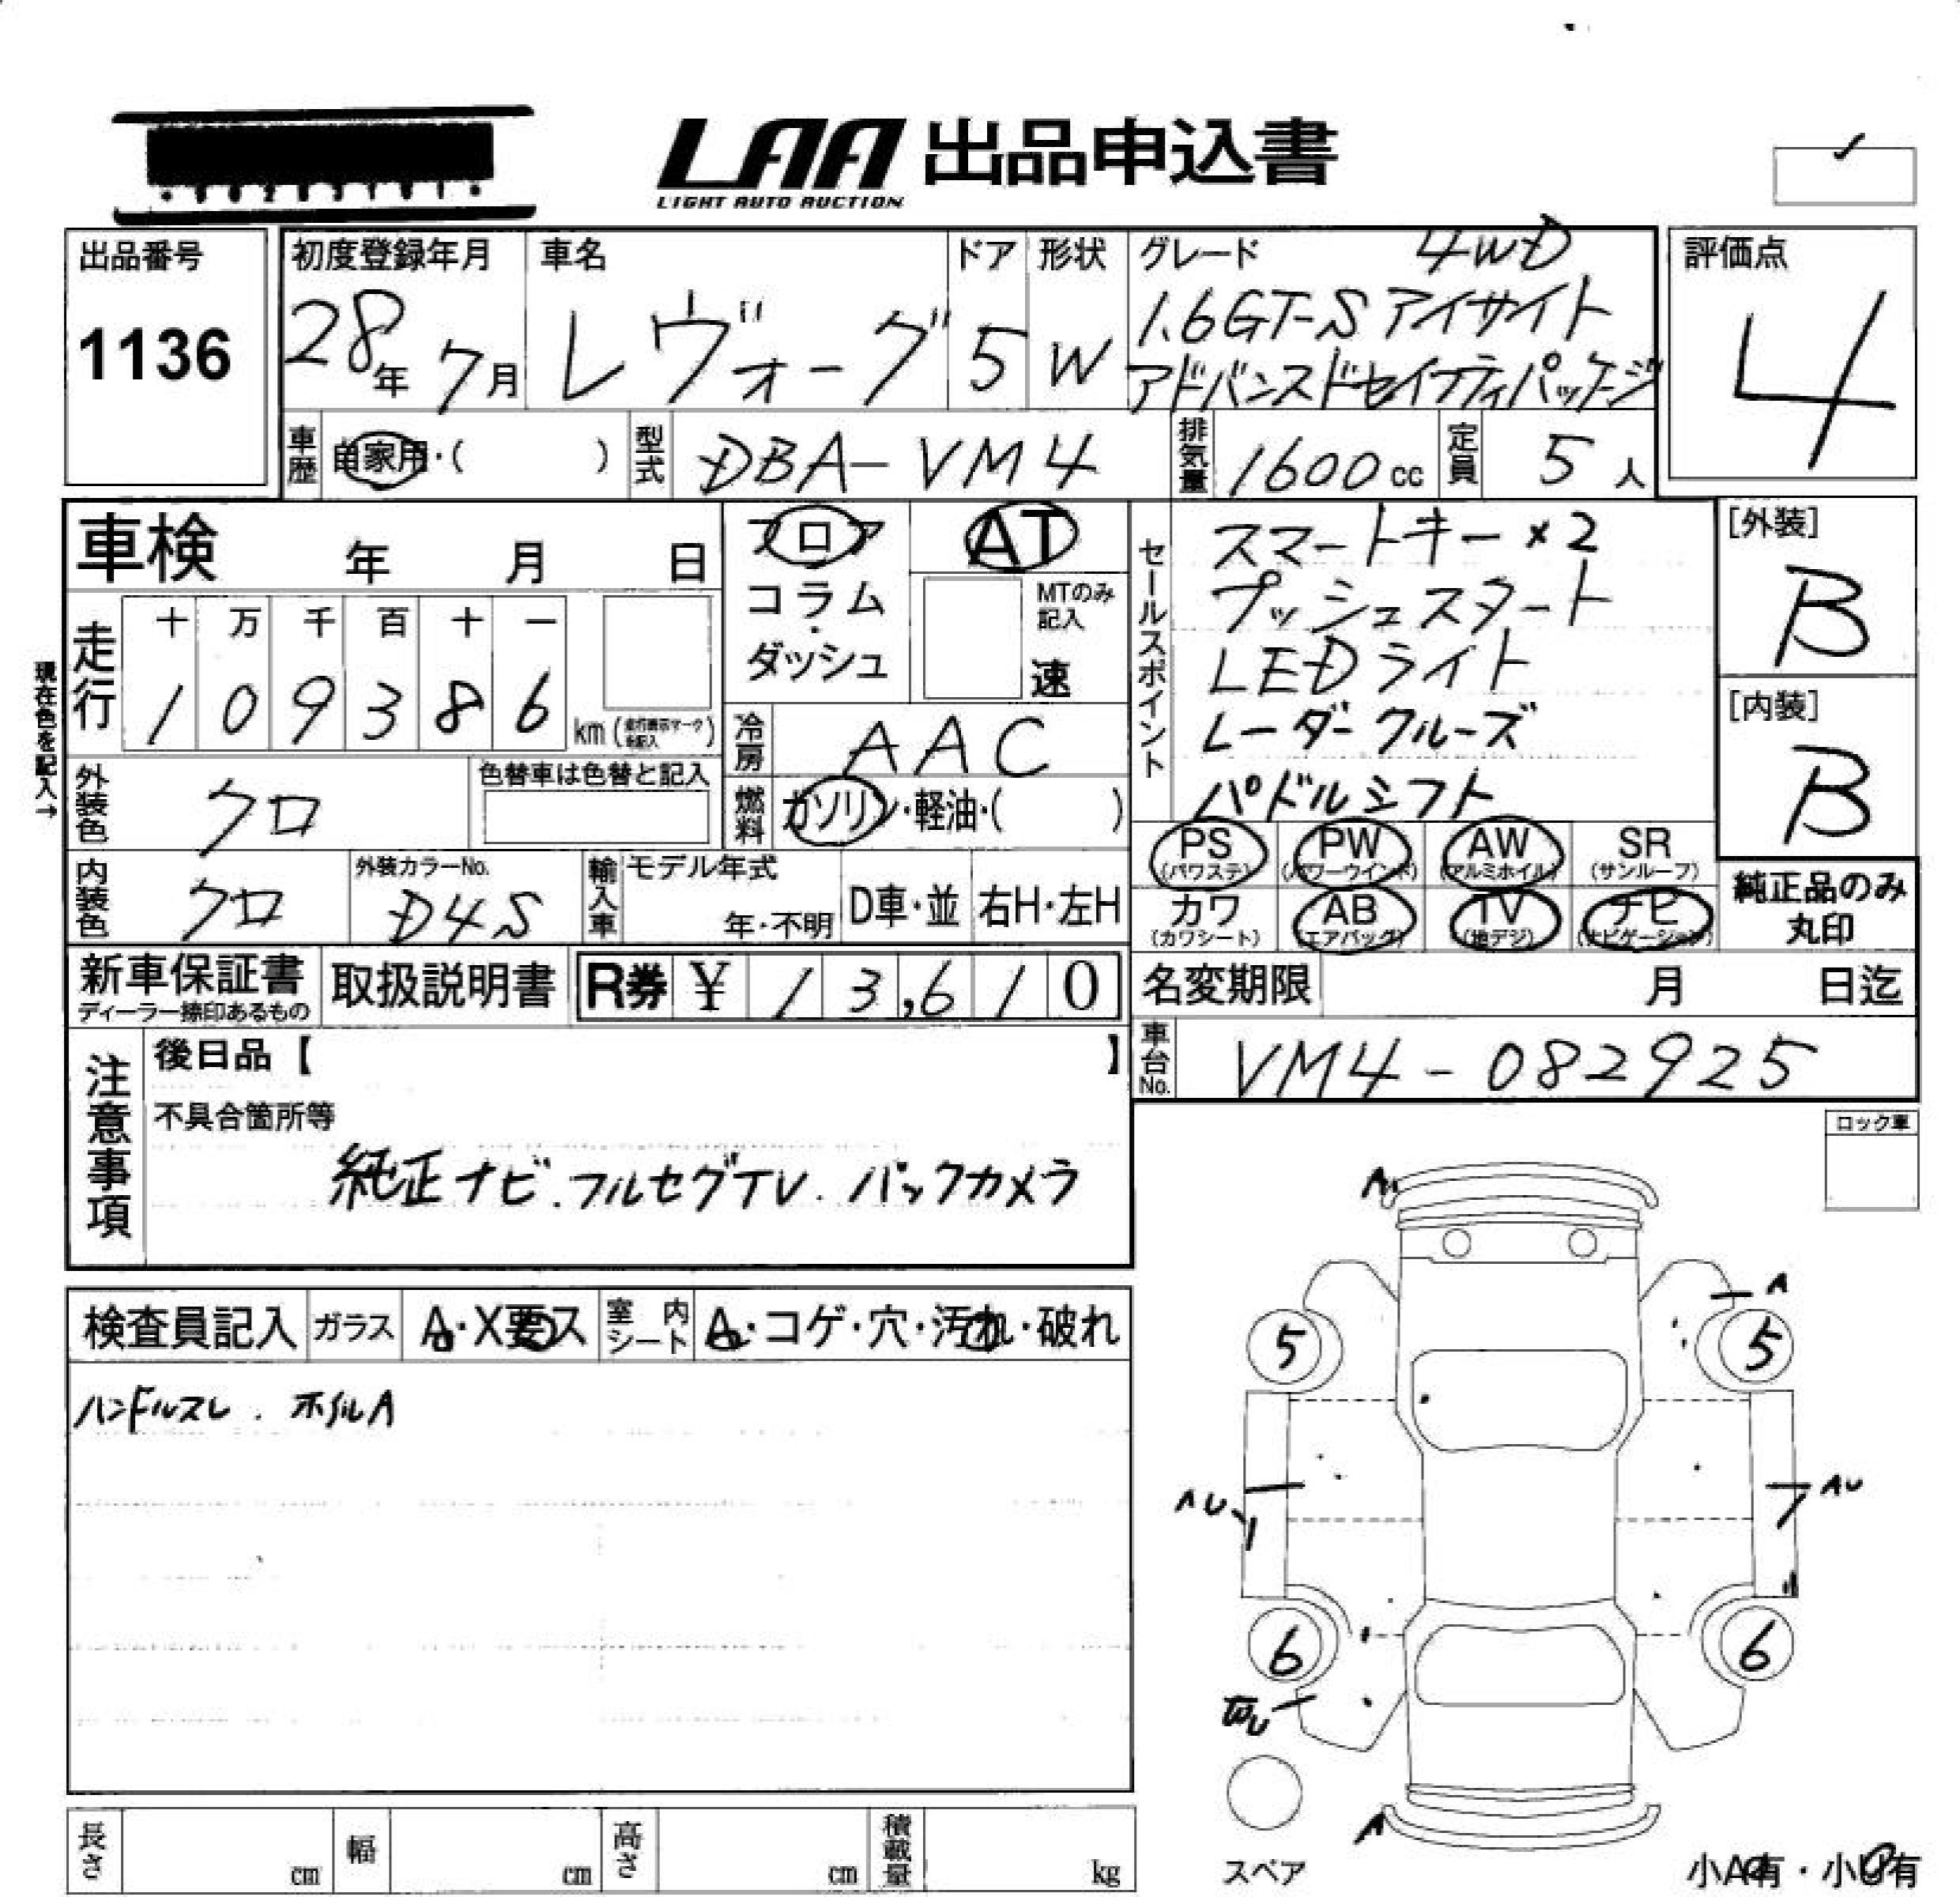 LAA 出品申込書
LIGHT AUTO AUCTION
出品番号
1136
初度登録年月
28年 7月
車名
レヴォーグ
ドア
5
形状
W
グレード
4WD
1.6GT-S アイサイト
アドバンスドセイフティパッケージ
評価点
4
車歴
自家用・( )
型式
DBA-VM4
排気量
1600cc
定員
5人
車検 年 月 日
フロア
コラム・
ダッシュ
AT
MTのみ
記入
速
現在色を記入→
走行
十 万 千 百 十 一
1 0 9 3 8 6 km ( )
冷房
AAC
燃料
ガソリン・軽油・( )
外装色
クロ
色替車は色替と記入
内装色
クロ
外装カラーNo.
D4S
輸入車
モデル年式
年・不明
D車・並
右H・左H
セールスポイント
スマートキー×2
プッシュスタート
LEDライト
レーダークルーズ
パドルシフト
[外装]
B
[内装]
B
PS
(パワステ)
PW
(パワーウインド)
AW
(アルミホイル)
SR
(サンルーフ)
カワ
(カワシート)
AB
(エアバッグ)
TV
(地デジ)
ナビ
(ナビゲーション)
純正品のみ
丸印
新車保証書
ディーラー捺印あるもの
取扱説明書
R券 ¥ 13,610
名変期限 月 日迄
車台No.
VM4-082925
注意事項
後日品【 】
不具合箇所等
純正ナビ.フルセグTV.バックカメラ
ロック車
検査員記入
ガラス
A・X要ス
室内シート
A・コゲ・穴・汚れ・破れ
ハンドルスレ . ホイルA
A
A
5
5
AU
AU
6
6
U
A
スペア
小A有・小U有
長さ cm
幅 cm
高さ cm
積載量 kg